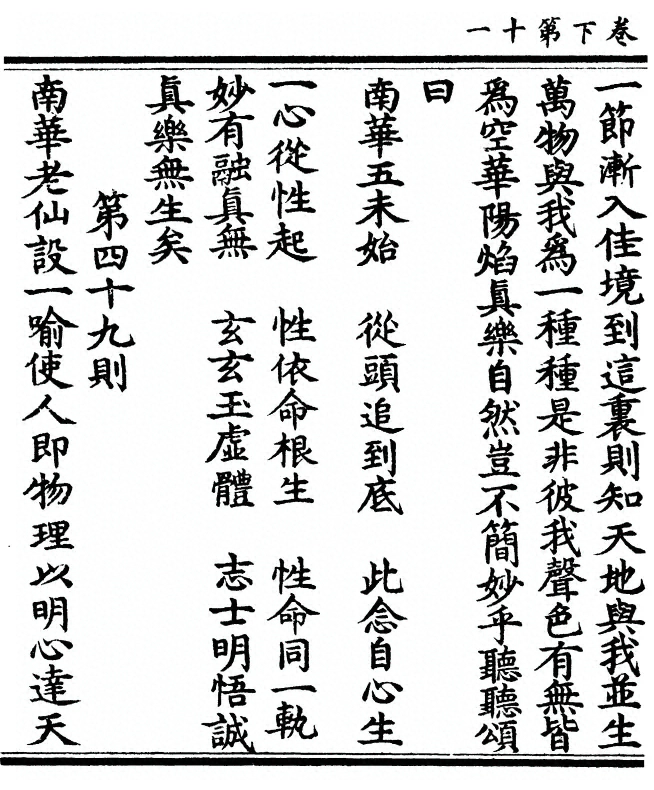 卷下第十一
一節漸入佳境到這裏則知天地與我並生
萬物與我爲一種種是非彼我聲色有無皆
爲空華陽焰眞樂自然豈不簡妙乎聽聽頌
曰
南華五未始　從頭追到底　此念自心生
一心從性起　性依命根生　性命同一軌
妙有融眞無　玄玄玉虛體　志士明悟誠
眞樂無生矣
第四十九則
南華老仙設一喻使人即物理以明心達天